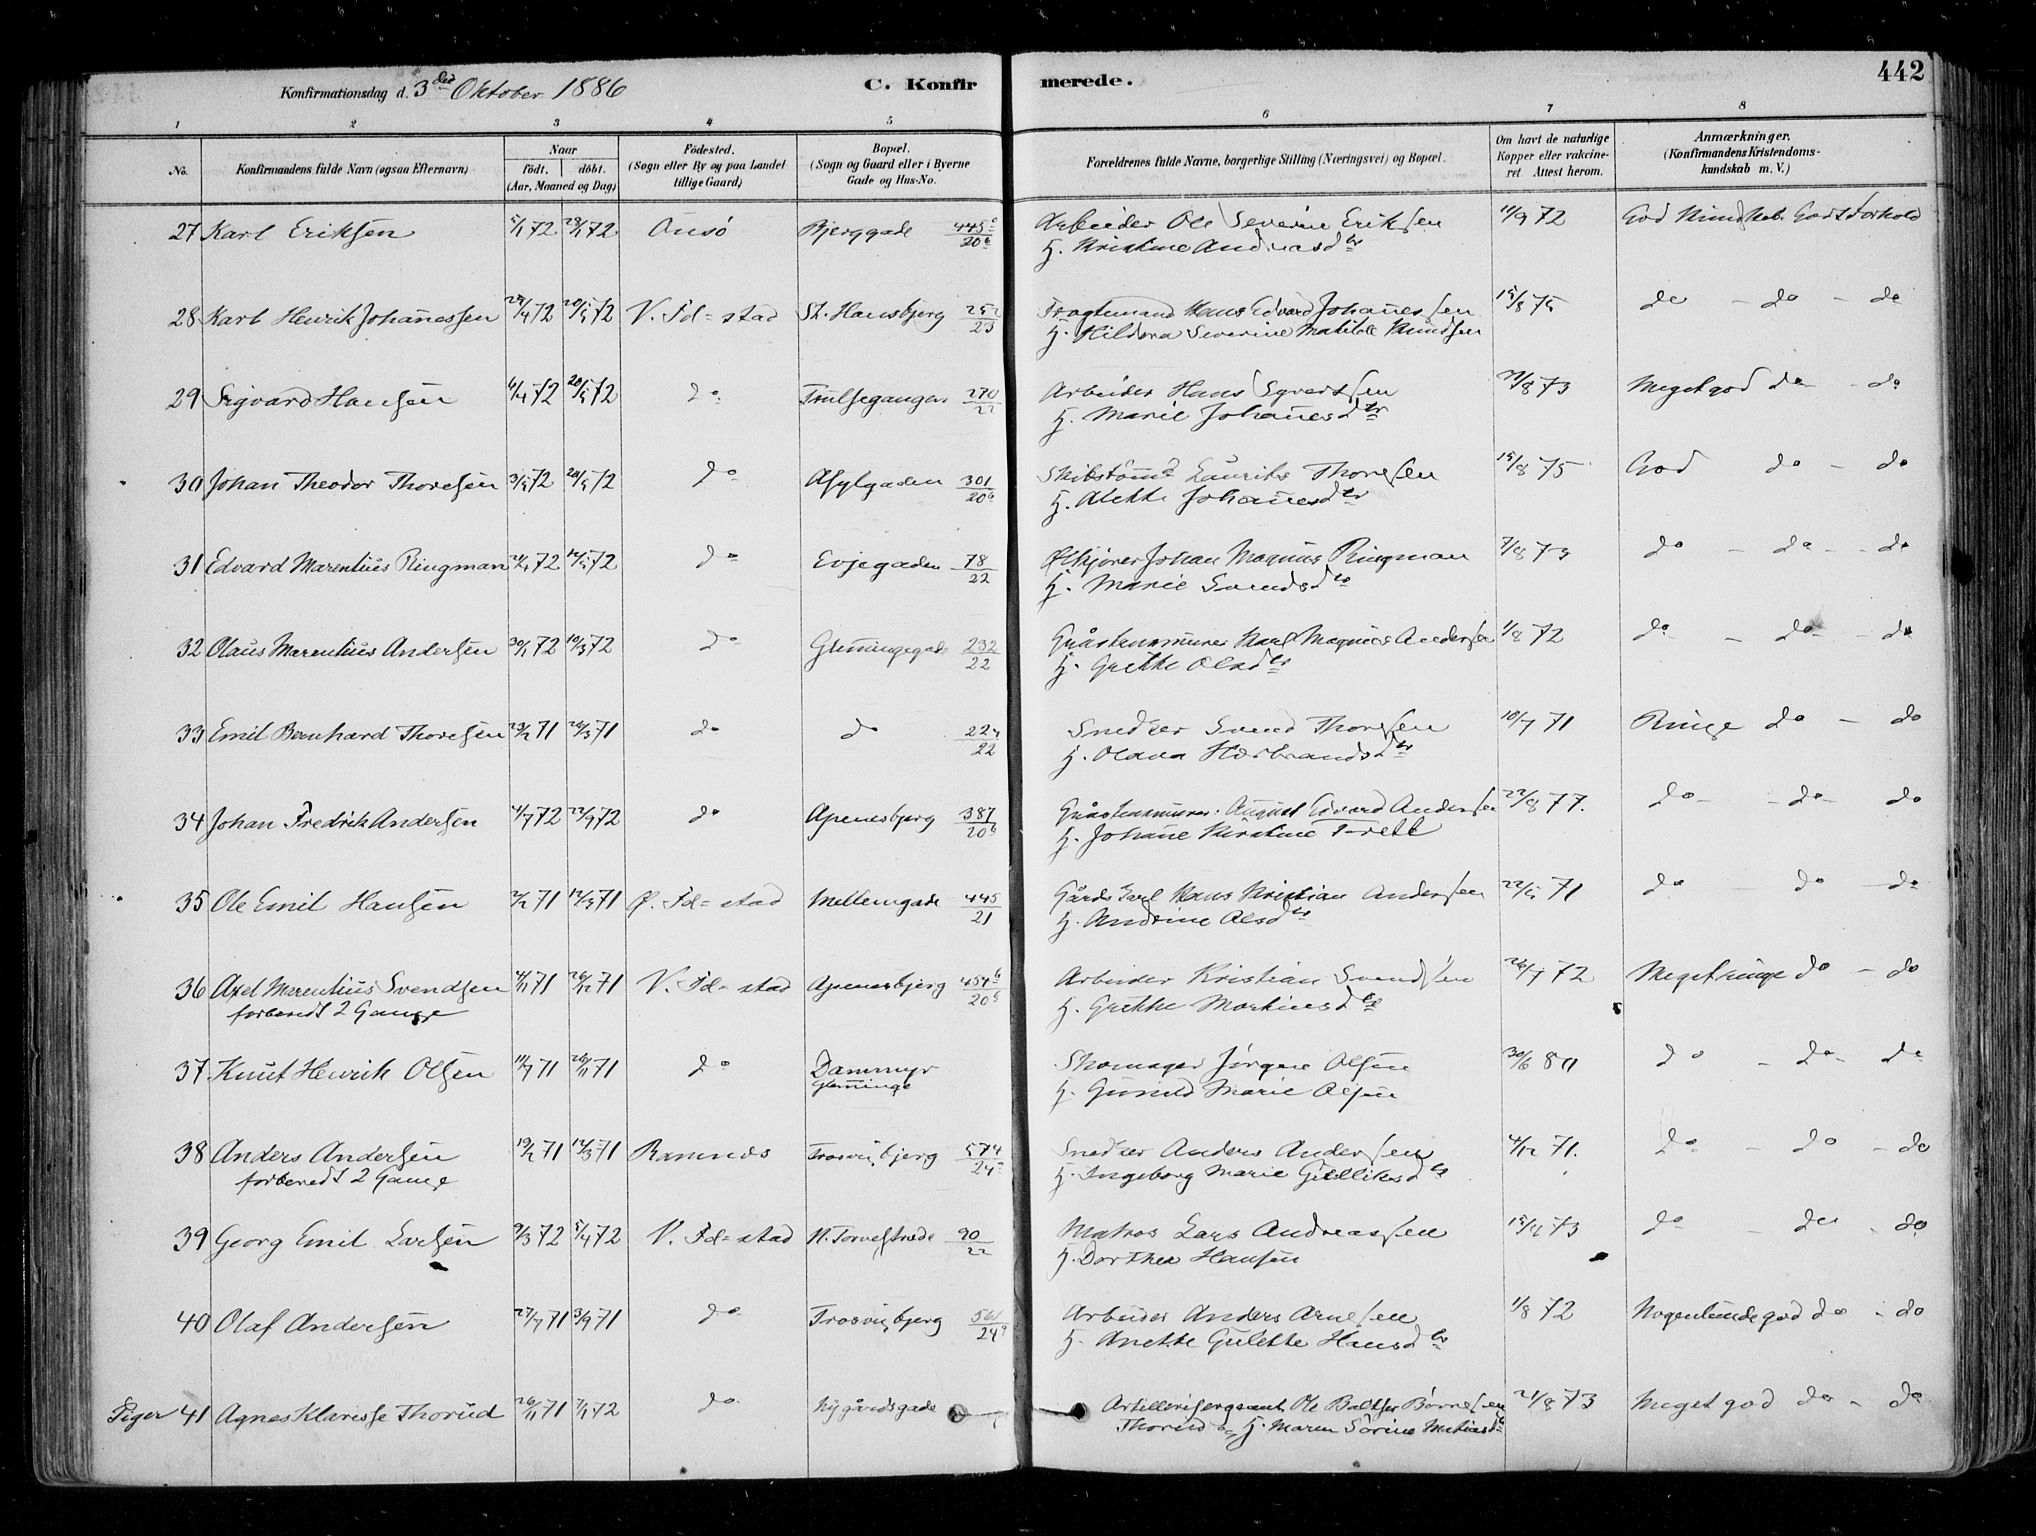 Konfirmationsdag d. 3die Oktober 1886 C. Konfirmerede. 442
1 2 3 4 5 6 7 8
No. Konfirmandens fulde Navn (ogsaa Efternavn) Naar født. døbt. (Aar, Maaned og Dag) Fødested. (Sogn eller By og paa Landet tillige Gaard) Bopæl. (Sogn og Gaard eller i Byerne Gade og Hus-No. Forældrenes fulde Navne, borgerlige Stilling (Næringsvei) og Bopæl. Om havt de naturlige Kopper eller vakcineret Attest herom. Anmærkninger. (Konfirmandens Kristendomskundskab m. V.)
27 Karl Eriksen 5/1 72 28/1 72 Onsø Bjerggade 445c/20b Arbeider Ole Severin Eriksen 11/9 72 God Kundskab Godt Forhold
H. Kristine Andreasdtr
28 Karl Henrik Johanessen 29/4 72 20/5 72 V. Fd=stad St. Hansbjerg 252/23 Fragtemand Hans Edvard Johanessen 15/8 75 do - do - do
H. Hildora Severine Matilde Knudsen
29 Sigvard Hansen 6/4 72 20/5 72 do Trulsegangen 270/22 Arbeider Hans Syvertsen 29/8 73 Meget god do - do
H. Marie Johanesdtr
30 Johan Theodor Thoresen 3/5 72 20/5 72 do Asylgaden 301/20b Skibstømd Laurits Thoresen 15/8 75 God do - do
H. Alette Johanesdtr
31 Edvard Marentius Ringman 21/4 72 12/5 72 do Evjegaden 78/22 Ølkjører Johan Magnus Ringman 7/8 73 do - do - do
H. Marie Svendsdtr
32 Olaus Marentius Andersen 30/1 72 10/3 72 do Glemmingegade 232/22 Gråstensmurer Karl Magnus Andersen 1/8 72 do - do - do
H. Grethe Olsdtr
33 Emil Bernhard Thoresen 23/2 71 26/3 71 do do 224/22 Snedker Svend Thoresen 10/7 71 Ringe do - do
H. Olava Herbrandsdtr
34 Johan Fredrik Andersen 4/7 72 22/9 72 do Apenesbjerg 387/20b Gråstensmurer August Edvard Andersen 22/8 77. do - do - do
H. Johane Kirstine
35 Ole Emil Hansen 2/2 71 12/3 71 Ø. Fd=stad Mellemgade 445/21 Gårdskarl Hans Kristian Andersen 22/5 71 do do do
H. Andrine Olsdtr
36 Axel Marentius Svendsen 4/11 71 26/12 71 V. Fd=stad Apenesbjerg 454b/20b Arbeider Kristian Svendsen 26/7 72 Meget ringe do - do
forberedt 2 Gange H. Grethe Martinesdtr
37 Knut Henrik Olsen 11/9 71 26/11 71 do Dammyr Skomager Jørgen Olsen 30/6 80 do - do - do
Glemminge H. Gunild Marie Olsen
38 Anders Andersen 19/2 71 12/3 71 Ramnes Trosvigbjerg 574/24a Snedker Anders Andersen 4/12 71. do - do - do
forberedt 2 Gange H. Ingeborg Marie Gulliksdtr
39 Georg Emil Larsen 9/3 72 5/4 72 V. Fd=stad N. Torvestræde 90/22 Matros Lars Andreassen 15/9 73 do - do - do
H. Dorthea Hansen
40 Olaf Andersen 27/7 71 3/9 71 do Trosvigbjerg 561/24a Arbeider Anders Arnesen 1/8 72 Nogenlunde god do - do
H. Anette Gulette Hansdtr
Piger 41 Agnes Klarisse Thorud 26/11 71 7/1 72 do Nygårdsgade Artillerisergeant Ole Baltser Børresen 21/8 73 Meget god do - do
Thorud og H. Maren Sørine Matiasdtr